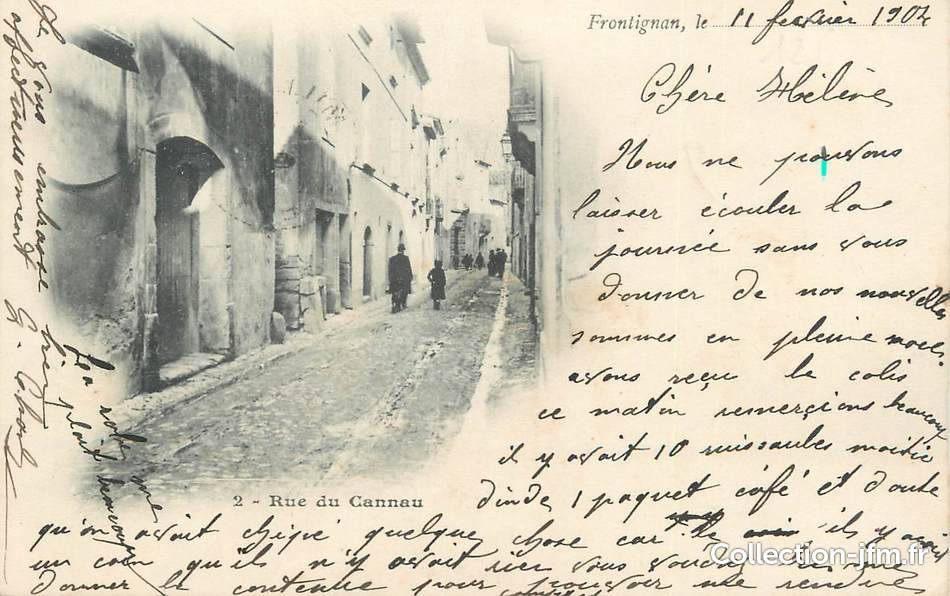 Frontignan, le 11 fevrier 1904
Chère Hélène
Nous ne pouvons
laisser écouler la
journée sans vous
donner de nos nouvelles
sommes en pleine
avons reçu le colis
ce matin remerçions beaucoup
il y avait 10 moitié
dinde 1 paquet café et doute
qu'on avait chipé quelque chose car il y avait
un coin qu'ils n'y avait rien vous
donner le contenue pour pouvoir me rendre
2 - Rue du Cannau
La robe me
plait beaucoup
Je vous embrasse bien
affectueusement
Collection-jfm.fr